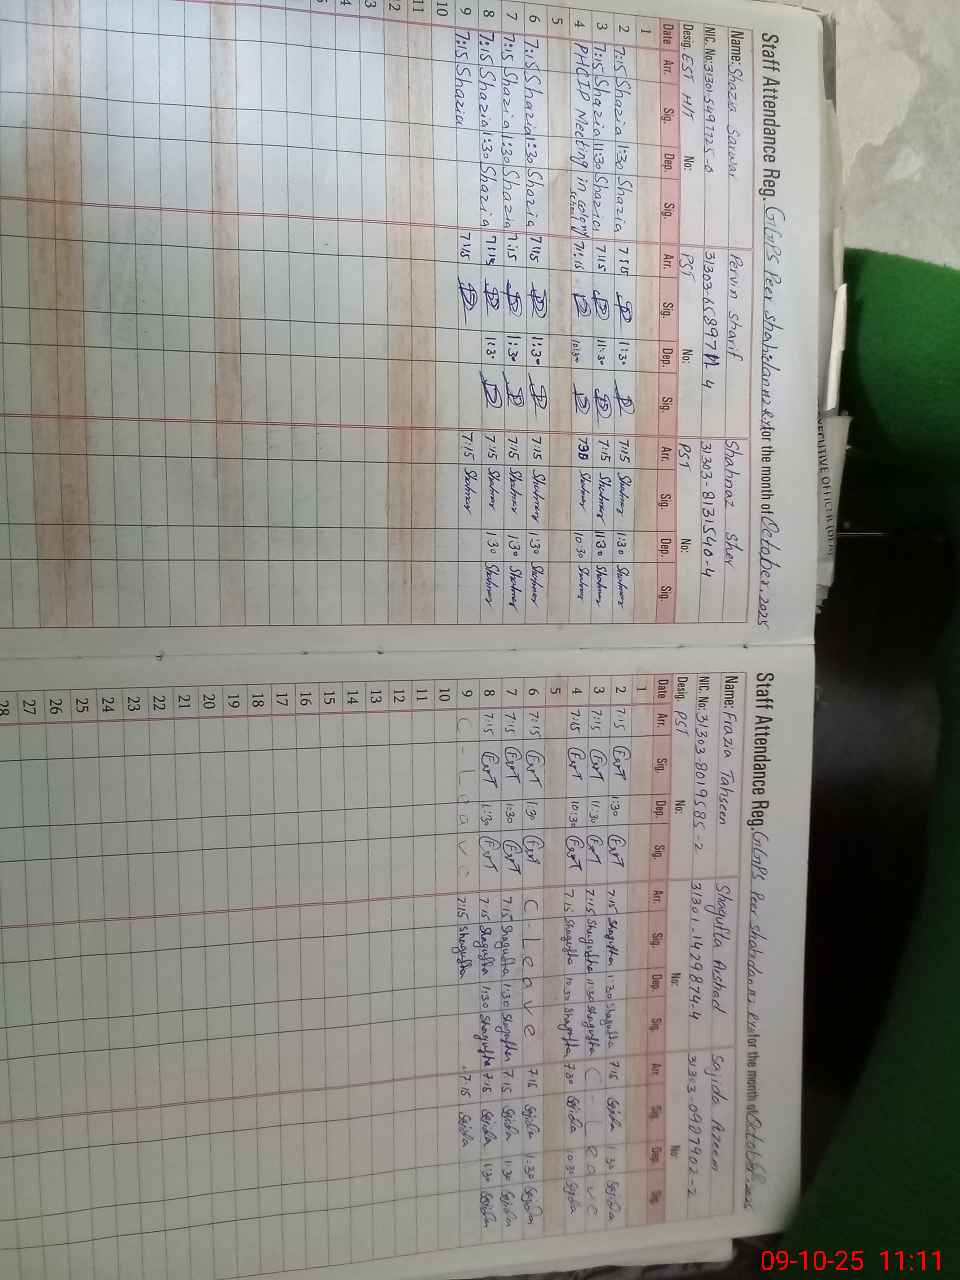 Staff Attendance Reg. GGPS Peer Shahidan for the month of October, 2025
Name: Shazia Sarwar Pervin Sharif Shahnaz Sher
NIC. No: 31303-8131540-4
Desig. EST H/T No: PST No: PST No:
Date Arr. Sig. Dep. Sig. Arr. Sig. Dep. Sig. Arr. Sig. Dep. Sig.
1
2 7:15 Shazia 1:30 Shazia 7:15 11:30 7:15 Shahnaz 1:30 Shahnaz
3 7:15 Shazia 11:30 Shazia 7:15 11:30 7:15 Shahnaz 11:30 Shahnaz
4 PHCIP Meeting in colony school 7:15 10:30 730 Shahnaz 10 30 Shahnaz
5
6 7:15 Shazia 1:30 Shazia 7:15 1:30 7:15 Shahnaz 1:30 Shahnaz
7 7:15 Shazia 1:30 Shazia 7:15 1:30 7:15 Shahnaz 1:30 Shahnaz
8 7:15 Shazia 1:30 Shazia 7:15 1:30 7:15 Shahnaz 1:30 Shahnaz
9 7:15 Shazia 7:15 7:15 Shahnaz
10
11
12
3
4
EXECUTIVE OFFICER (DEA)
Staff Attendance Reg. GGPS Peer Shahidan for the month of October, 2025
Name: Frazia Tahseen Shagufta Arshad Sajida Azeem
NIC. No: 31303-8019585-2 31301-1429874-4 31303-0987902-2
Desig. PST No: No: No:
Date Arr. Sig. Dep. Sig. Arr. Sig. Dep. Sig. Arr. Sig. Dep. Sig.
1
2 7:15 1:30 7:15 Shagufta 1:30 Shagufta 7:15 Sajida 1:30 Sajida
3 7:15 11:30 7:15 Shagufta 11:30 Shagufta C - Leave
4 7:15 10:30 7:15 Shagufta 10:30 Shagufta 7:30 Sajida 10:30 Sajida
5
6 7:15 1:30 C - Leave 7:15 Sajida 1:30 Sajida
7 7:15 1:30 7:15 Shagufta 1:30 Shagufta 7:15 Sajida 1:30 Sajida
8 7:15 1:30 7:15 Shagufta 1:30 Shagufta 7:15 Sajida 1:30 Sajida
9 C - Leave 7:15 Shagufta 7:15 Sajida
10
11
12
13
14
15
16
17
18
19
20
21
22
23
24
25
26
27
28
09-10-25 11:11